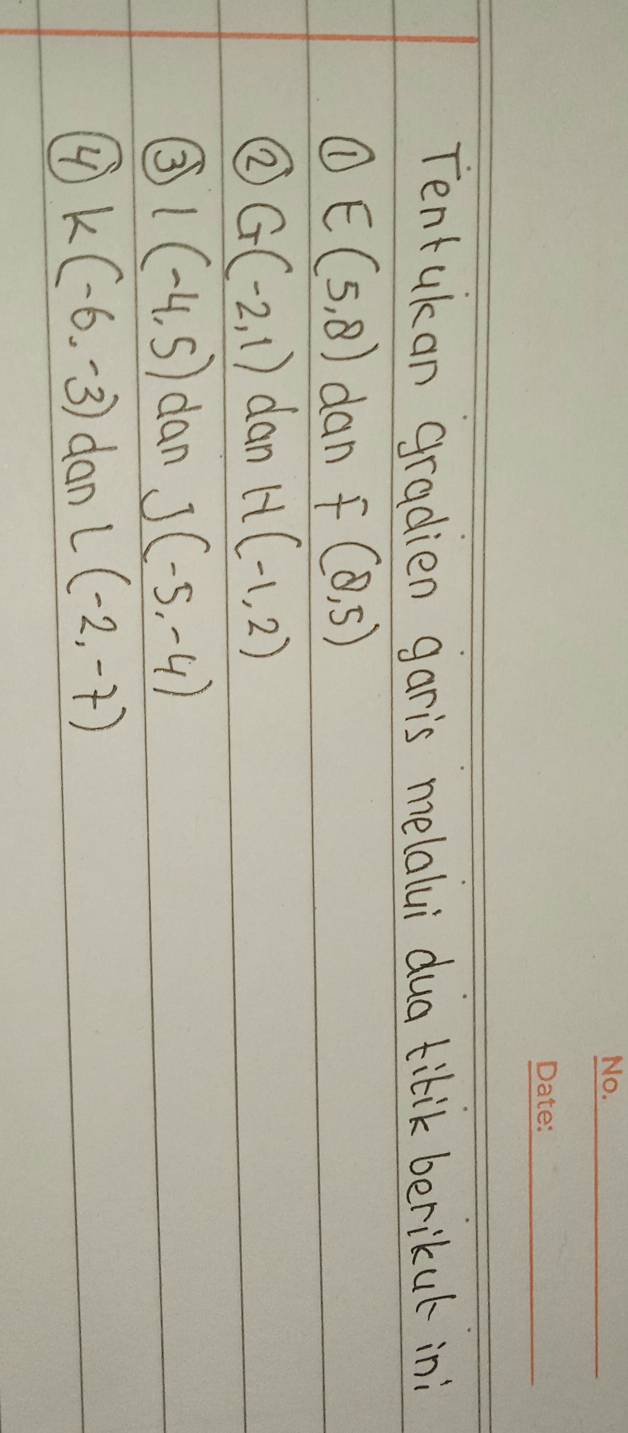 No.
Date:
Tentukan gradien garis melalui dua titik berikut ini
① E (5,8) dan F (8,5)
② G(-2,1) dan H(-1,2)
③ I (-4,5) dan J(-5,-4)
④ K(-6,-3) dan L(-2,-7)